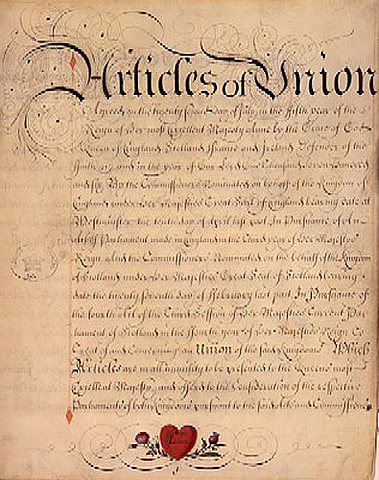 Articles of Union
Agreed on the twenty second day of July in the fifth year of the
Reign of Her most Excellent Majesty Anne by the Grace of God
Queen of England Scotland France and Ireland Defender of the
Faith &c and in the year of Our Lord One thousand Seven hundred
and six By the Commissioners Nominated on behalf of the Kingdom of
England under Her Majesties Great Seal of England bearing date at
Westminster the tenth day of April last past In Pursuance of an
Act of Parliament made in England in the third year of Her Majesties
Reign and the Commissioners Nominated on the behalf of the Kingdom
of Scotland under Her Majesties Great Seal of Scotland bearing
date the twenty seventh day of ffebruary last past In Pursuance of
the fourth Act of the third Session of Her Majesties Current Par
liament of Scotland in the year of Her Majesties Reign to
Treat of and Concerning an Union of the said Kingdoms Which
Articles are in all humility to be presented to the Queens most
Excellent Majesty and offered to the Consideration of the respective
Parliaments of both Kingdoms pursuant to the said Acts and Commissions